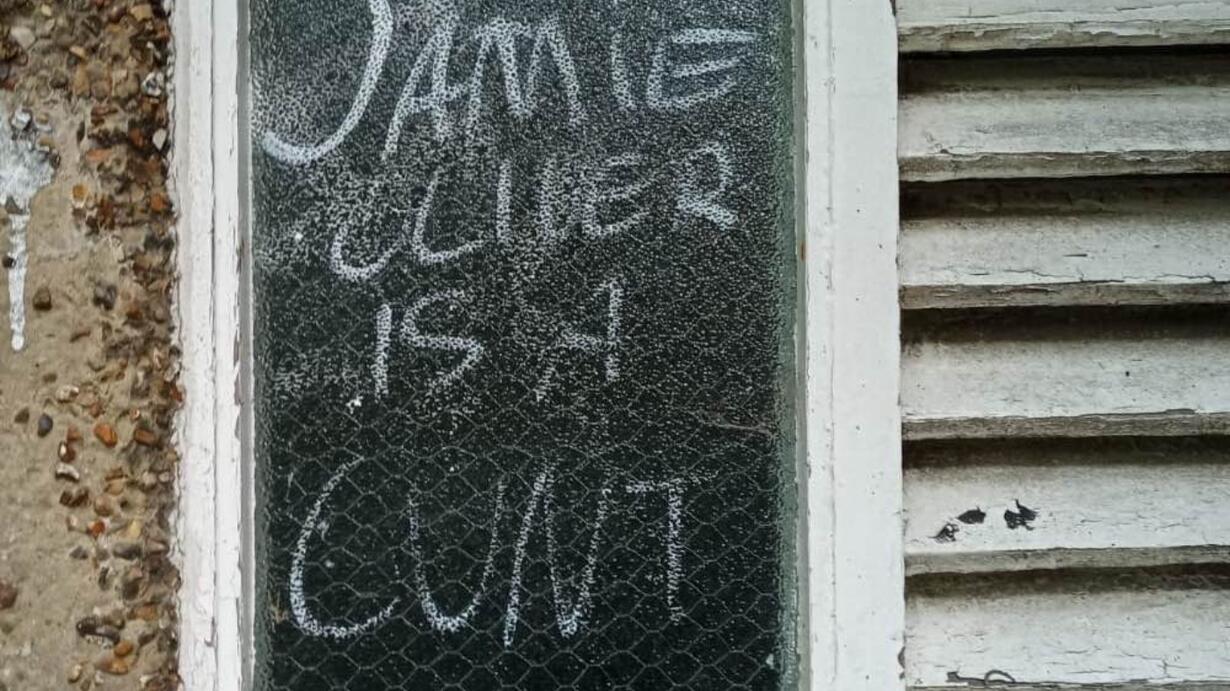 JAMIE
OLIVER
IS A
CUNT